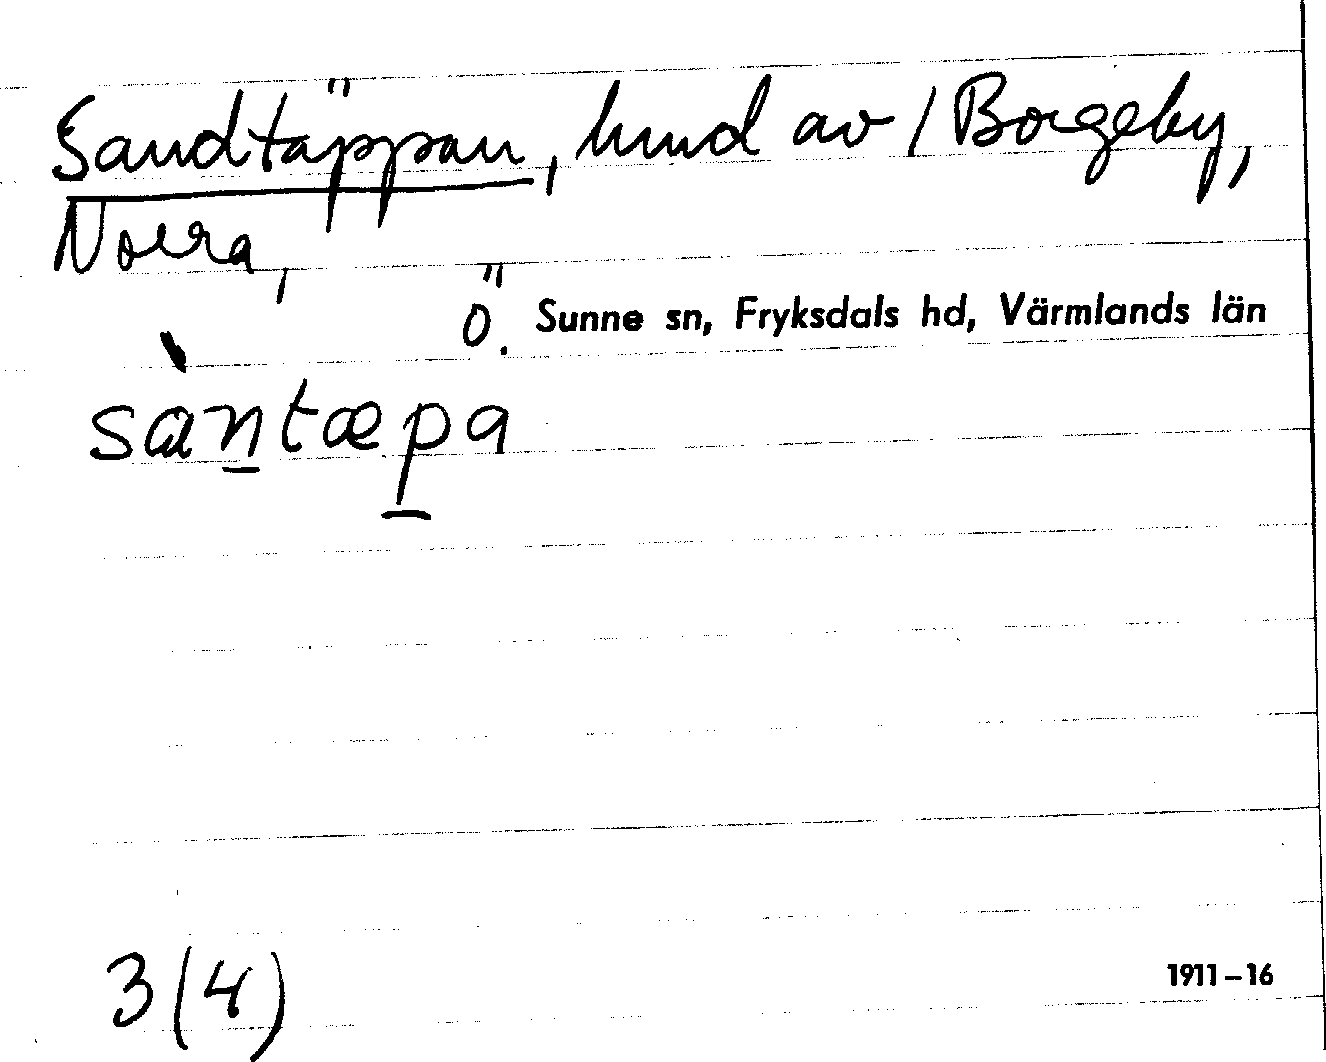 Sandtäppan, lund av / Borgeby,
Norra,
Ö. Sunne sn, Fryksdals hd, Värmlands län
sàn̲tæp̲a
3 (4)
1911–16